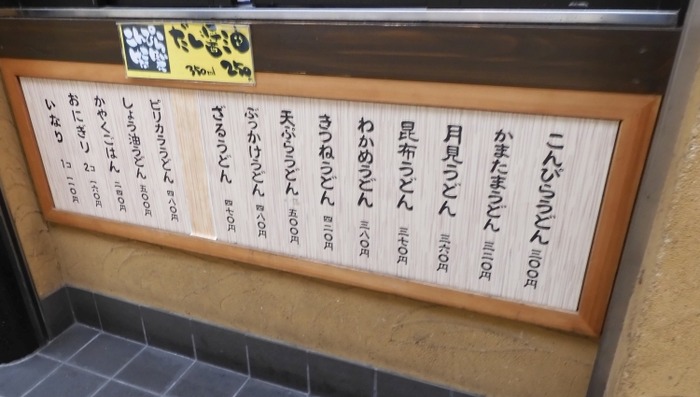 だし醤油
350ml 250円
こんぴらうどん 三〇〇円
かまたまうどん 三二〇円
月見うどん 三六〇円
昆布うどん 三七〇円
わかめうどん 三八〇円
きつねうどん 四二〇円
天ぷらうどん 五〇〇円
ぶっかけうどん 四八〇円
ざるうどん 四七〇円
ピリカラうどん 四八〇円
しょう油うどん 五〇〇円
かやくごはん 二四〇円
おにぎり 2コ 一六〇円
いなり 1コ 一一〇円